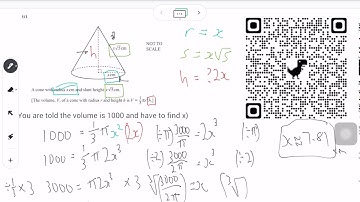 (c)
h
x√5 cm
x cm
NOT TO
SCALE
r = x
s = x√5
h = ?2x
A cone with radius x cm and slant height x√5 cm.
[The volume, V, of a cone with radius r and height h is V = 1/3 πr²h.]
You are told the volume is 1000 and have to find x)
1000 = 1/3 π x² (2x) (÷π) 3000/π = 2x³ (÷π)
1000 = 1/3 π 2x³ (÷2) 3000/2π = x³ (÷2)
÷1/3 ×3 3000 = π2x³ ×3 ∛(3000/2π) = x (∛)
x ≈ 7.81 cm